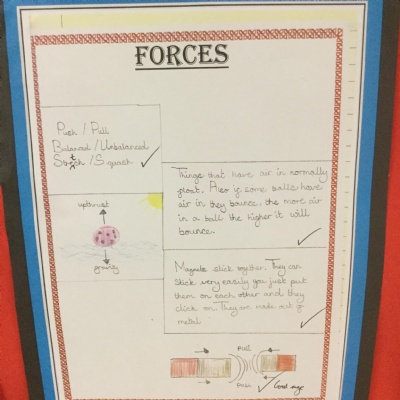 FORCES
Push / Pull
Balanced / Unbalanced
Stretch / Squash
upthrust
gravity
Things that have air in normally
float. Also if some balls have
air in they bounce, the more air
in a ball the higher it will
bounce.
Magnets stick together. They can
stick very easily you just put
them on each other and they
click on. They are made out of
metal
pull
push